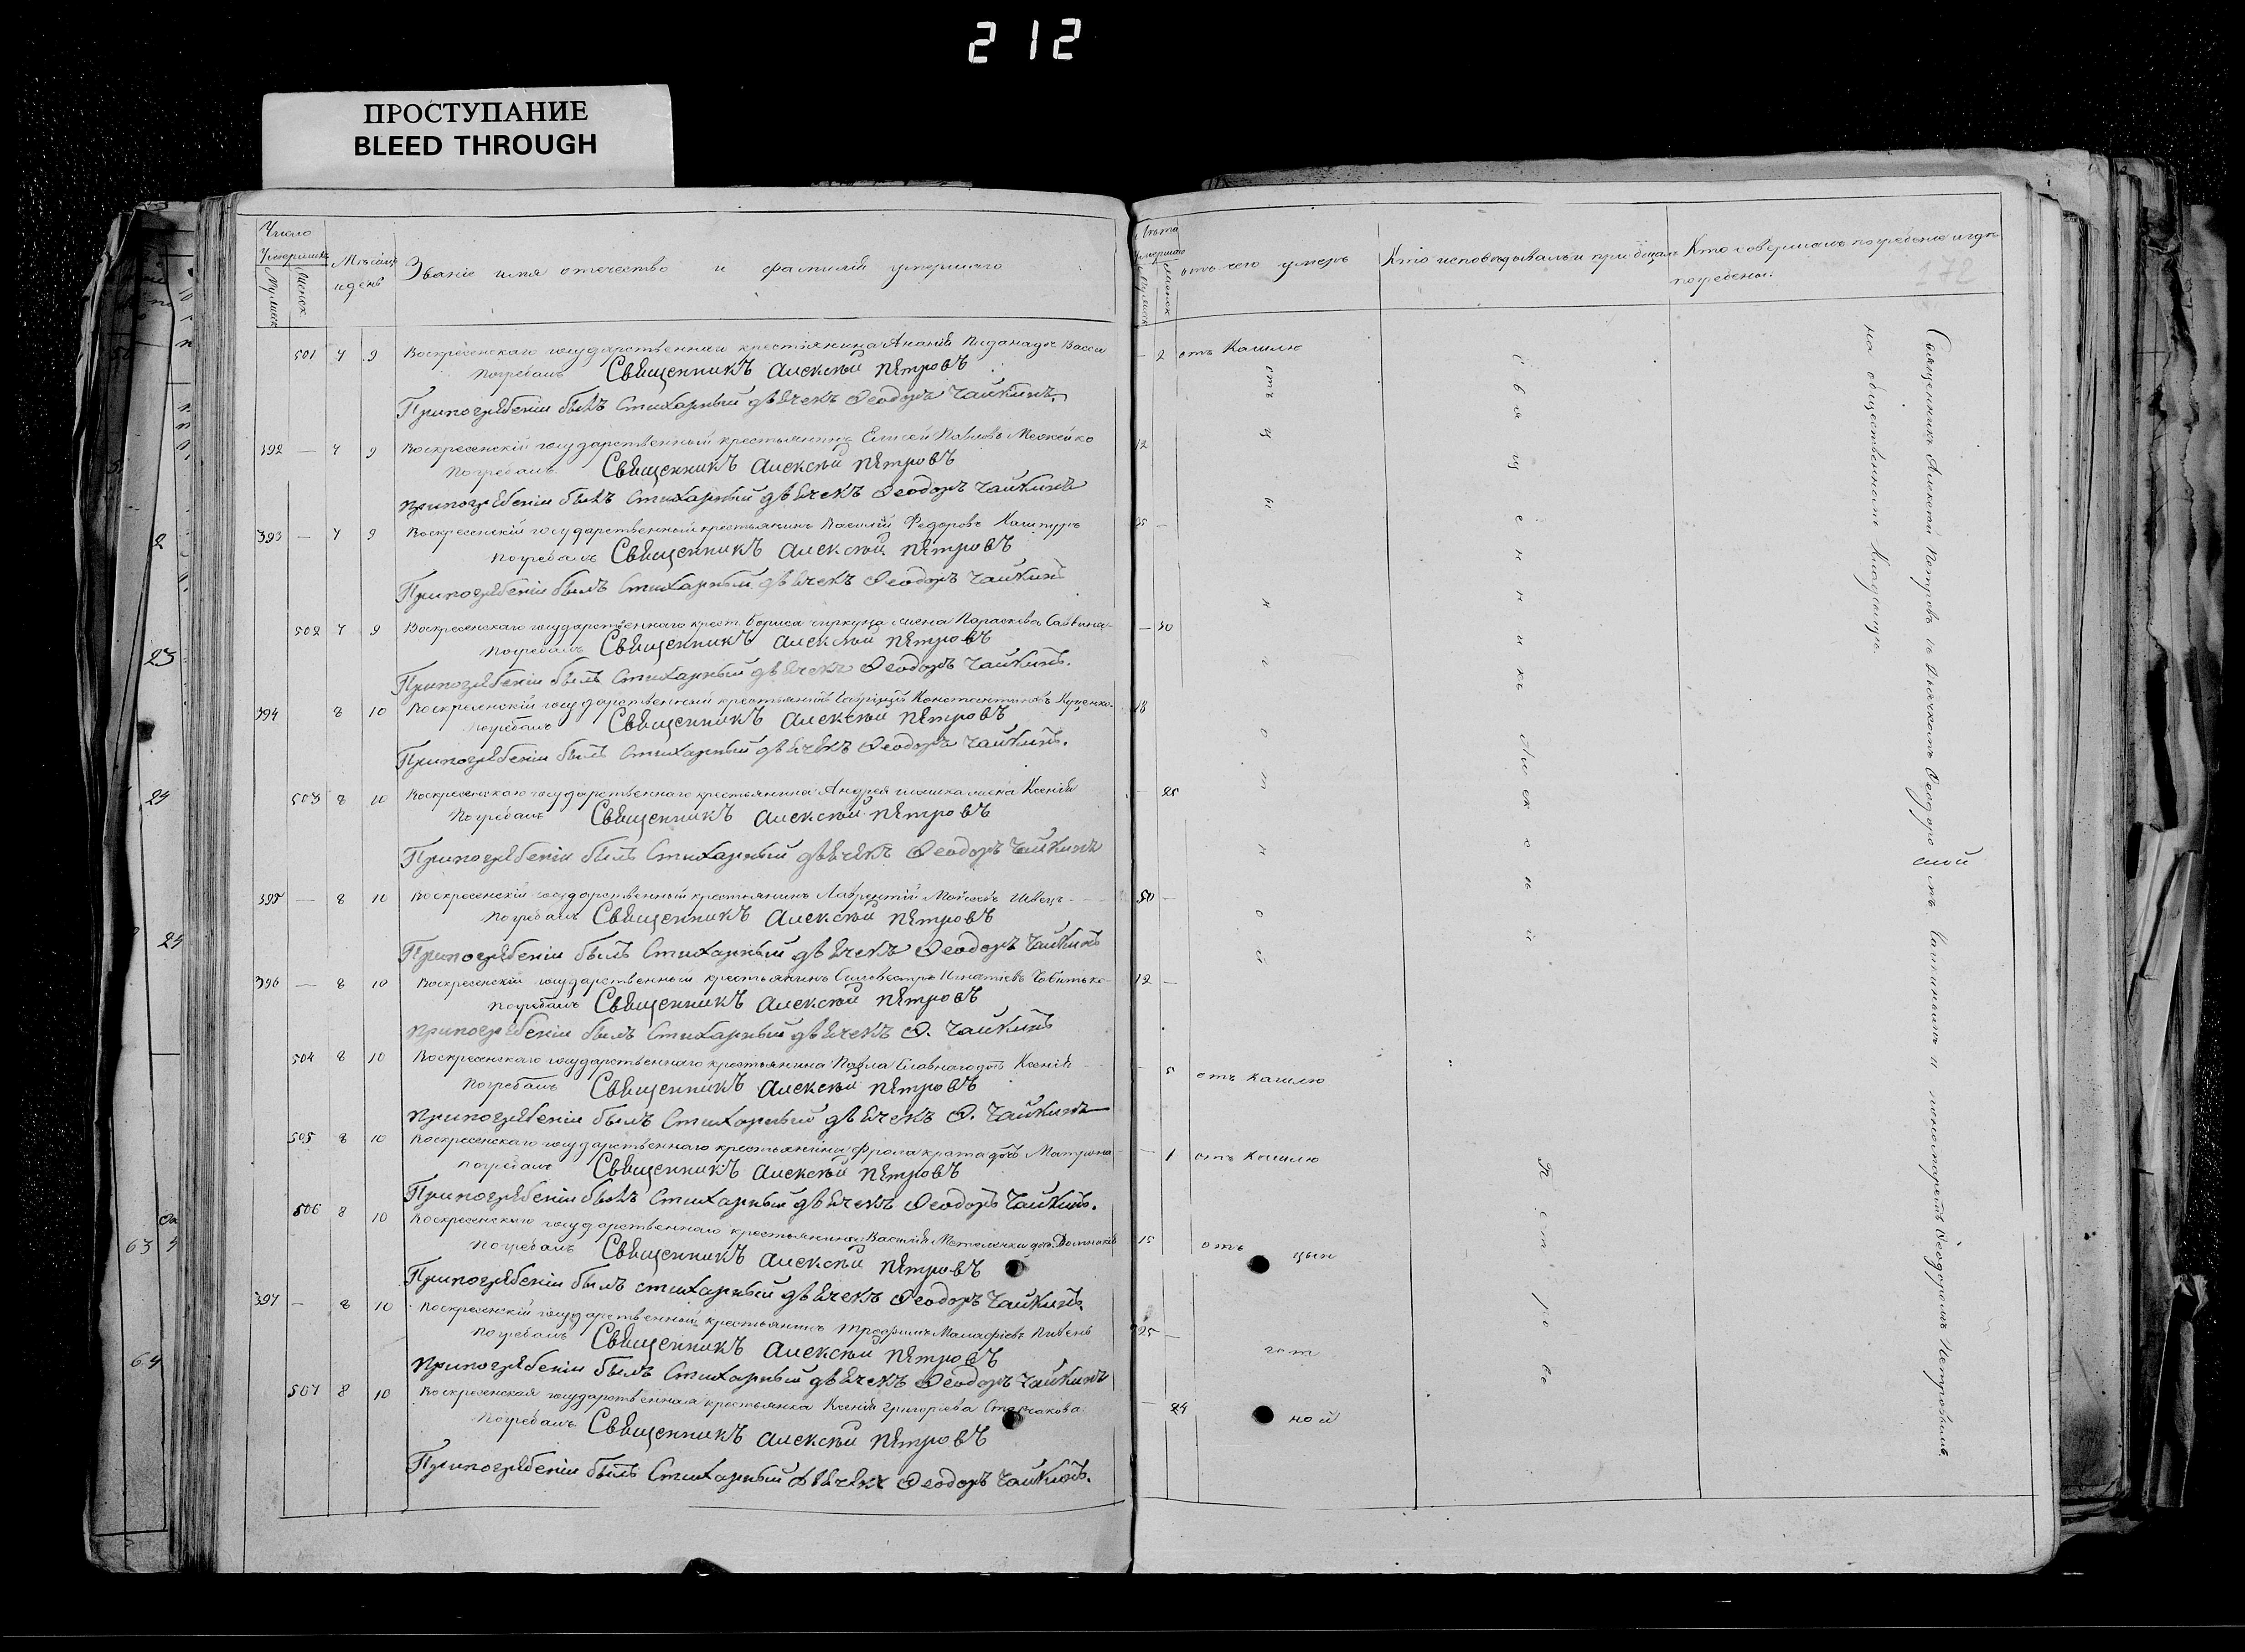 212
ПРОСТУПАНИЕ
BLEED THROUGH
Число
Умершихъ
Мужеск
Женск
Мѣсяцъ
и день
Званіе имя отечество и фамилія умершаго
501 7 9 Воскресенскаго государственнаго крестьянина Ананія дочь Васса
Погребалъ Священникъ Алексѣй Петровъ
Припогребеніи былъ Стихарный дьячекъ Ѳеодоръ Чайкинъ.
392 — 7 9 Воскресенскій государственный крестьянинъ Елисей Павловъ
Погребалъ Священникъ Алексѣй Петровъ
Припогребеніи былъ Стихарный дьячекъ Ѳеодоръ Чайкинъ
393 — 7 9 Воскресенскій государственный крестьянинъ Василій Федоровъ
Погребалъ Священникъ Алексѣй Петровъ
Припогребеніи былъ Стихарный дьячекъ Ѳеодоръ Чайкинъ
502 7 9 Воскресенскаго государственнаго крест. Бориса жена Параскева Саввина
Погребалъ Священникъ Алексѣй Петровъ
Припогребеніи былъ Стихарный дьячекъ Ѳеодоръ Чайкинъ.
394 8 10 Воскресенскій государственный крестьянинъ Константиновъ Куценко
Погребалъ Священникъ Алексѣй Петровъ
Припогребеніи былъ Стихарный дьячекъ Ѳеодоръ Чайкинъ.
503 8 10 Воскресенскаго государственнаго крестьянина Андрея жена Ксенія
Погребалъ Священникъ Алексѣй Петровъ
Припогребеніи былъ Стихарный дьячекъ Ѳеодоръ Чайкинъ
395 — 8 10 Воскресенскій государственный крестьянинъ Лаврентій Швецъ
Погребалъ Священникъ Алексѣй Петровъ
Припогребеніи былъ Стихарный дьячекъ Ѳеодоръ Чайкинъ
396 — 8 10 Воскресенскій государственный крестьянинъ Игнатіевъ
Погребалъ Священникъ Алексѣй Петровъ
Припогребеніи былъ Стихарный дьячекъ Ѳ. Чайкинъ
504 8 10 Воскресенскаго государственнаго крестьянина Павла Славнаго дочь Ксенія
Погребалъ Священникъ Алексѣй Петровъ
Припогребеніи былъ Стихарный дьячекъ Ѳ. Чайкинъ
505 8 10 Воскресенскаго государственнаго крестьянина Фрола дочь Матрона
Погребалъ Священникъ Алексѣй Петровъ
Припогребеніи былъ Стихарный дьячекъ Ѳеодоръ Чайкинъ.
506 8 10 Воскресенскаго государственнаго крестьянина Василія дочь
Погребалъ Священникъ Алексѣй Петровъ
Припогребеніи былъ стихарный дьячекъ Ѳеодоръ Чайкинъ
397 — 8 10 Воскресенскій государственный крестьянинъ Трофимъ
Погребалъ Священникъ Алексѣй Петровъ
Припогребеніи былъ Стихарный дьячекъ Ѳеодоръ Чайкинъ
507 8 10 Воскресенская государственная крестьянка Ксенія Григоріева
Погребалъ Священникъ Алексѣй Петровъ
Припогребеніи былъ Стихарный дьячекъ Ѳеодоръ Чайкинъ.
Лѣта
умершаго
Мужеск
Женск
отъ чего умеръ
Кто исповѣдывалъ и пріобщалъ
Кто совершалъ погребеніе и гдѣ
погребены.
172
— 2 отъ Кашлю
12
— 30
18
25
50 —
12 —
5 отъ кашлю
— 1 отъ кашлю
15
25 —
— 24
отъ цынготной
отъ цынготной
священникъ Алексѣй Петровъ
Священникъ Алексѣй Петровъ съ Дьячкомъ Ѳеодоромъ Чайкинымъ и пономаремъ Ѳеодоромъ Петровымъ
на общественномъ Кладбищѣ.
2
23
24
24
63
64